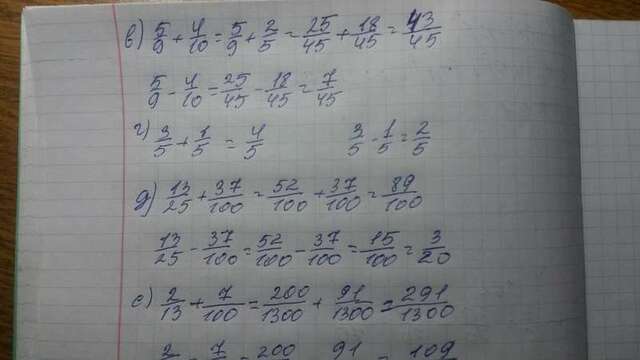 в) 5/9 + 4/10 = 5/9 + 2/5 = 25/45 + 18/45 = 43/45
5/9 - 4/10 = 25/45 - 18/45 = 7/45
г) 3/5 + 1/5 = 4/5 3/5 - 1/5 = 2/5
д) 13/25 + 37/100 = 52/100 + 37/100 = 89/100
13/25 - 37/100 = 52/100 - 37/100 = 15/100 = 3/20
е) 2/13 + 7/100 = 200/1300 + 91/1300 = 291/1300
2 - 7 = 200 - 91 = 109